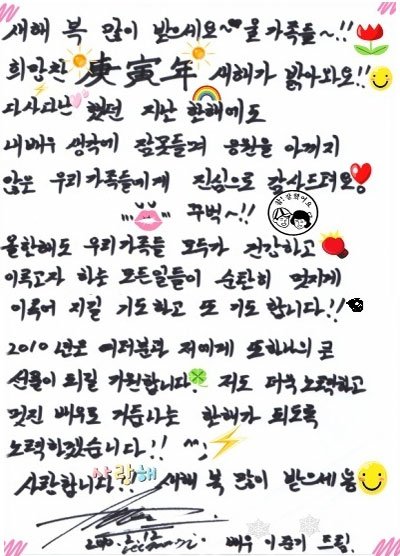 새해 복 많이 받으세요~ 울 가족들~!!
희망찬 庚寅年 새해가 밝아와요!!
다사다난 했던 지난 한해에도
내배우 생각에 잠못들겨 응원을 아끼지
않은 우리가족들에게 진심으로 감사드려요
꾸벅~!!
참! 잘했어요
올한해도 우리가족들 모두가 건강하고
이루고자 하는 모든일들이 순탄히 멋지게
이루어 지길 기도하고 또 기도합니다.!!
2010년은 여러분과 저에게 또하나의 큰
선물이 되길 기원합니다. 저도 더욱 노력하고
멋진 배우로 거듭나는 한해가 되도록
노력하겠습니다!! ^^;
사랑해
사랑합니다!! 새해 복 많이 받으세용
배우 이준기 드림.